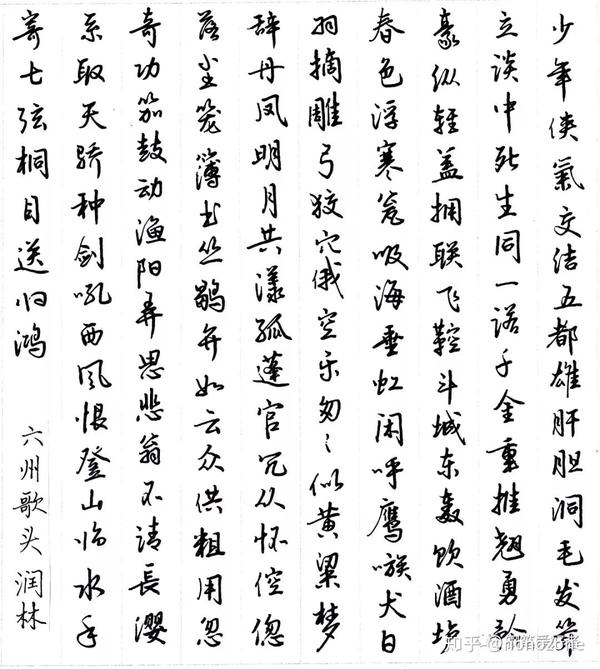 少年俠氣交结五都雄肝胆洞毛发耸
立谈中死生同一诺千金重推翘勇矜
豪纵轻盖拥联飞鞚斗城东轰饮酒垆
春色浮寒瓮吸海垂虹闲呼鹰嗾犬白
羽摘雕弓狡穴俄空乐匆々似黄粱梦
辞丹凤明月共漾孤蓬官冗从怀倥偬
落尘笼簿书丛鹖弁如云众供粗用忽
奇功笳鼓动渔阳弄思悲翁不请長缨
系取天骄种剑吼西风恨登山临水手
寄七弦桐目送归鸿
六州歌头 润林
知乎